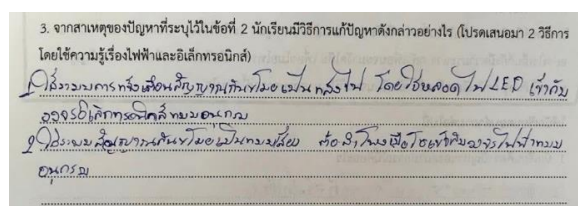 3. จากสาเหตุของปัญหาที่ระบุไว้ในข้อที่ 2 นักเรียนมีวิธีการแก้ปัญหาดังกล่าวอย่างไร (โปรดเสนอมา 2 วิธีการ
โดยใช้ความรู้เรื่องไฟฟ้าและอิเล็กทรอนิกส์)
1 ใช้ระบบการแจ้งเตือนสัญญาณกันขโมยเป็นแสงไฟ โดยใช้หลอดไฟ LED เข้ากับ
วงจรอิเล็กทรอนิกส์แบบอนุกรม
2 ใช้ระบบสัญญาณกันขโมยเป็นแบบเสียง ต่อลำโพงเข้ากับวงจรไฟฟ้าแบบ
อนุกรม